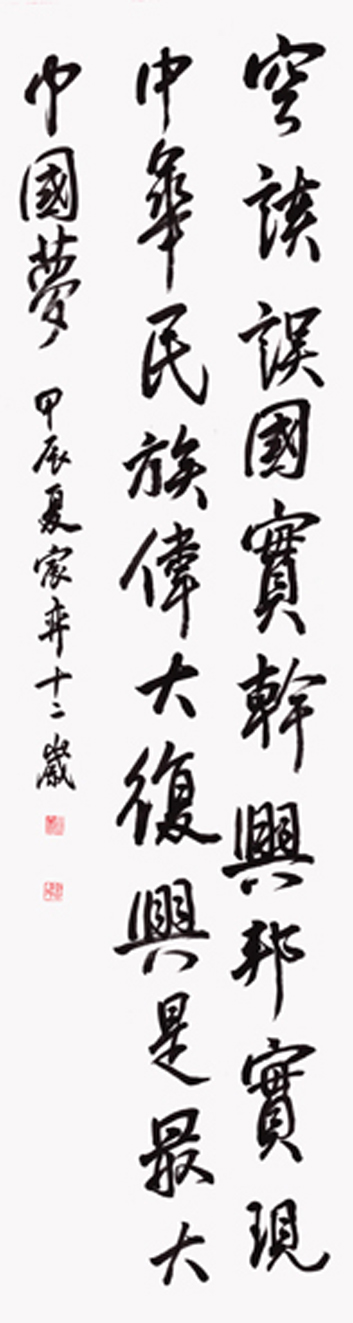 空談誤國實幹興邦實現
中華民族偉大復興是最大
中國夢
甲辰夏宸弈十二歲